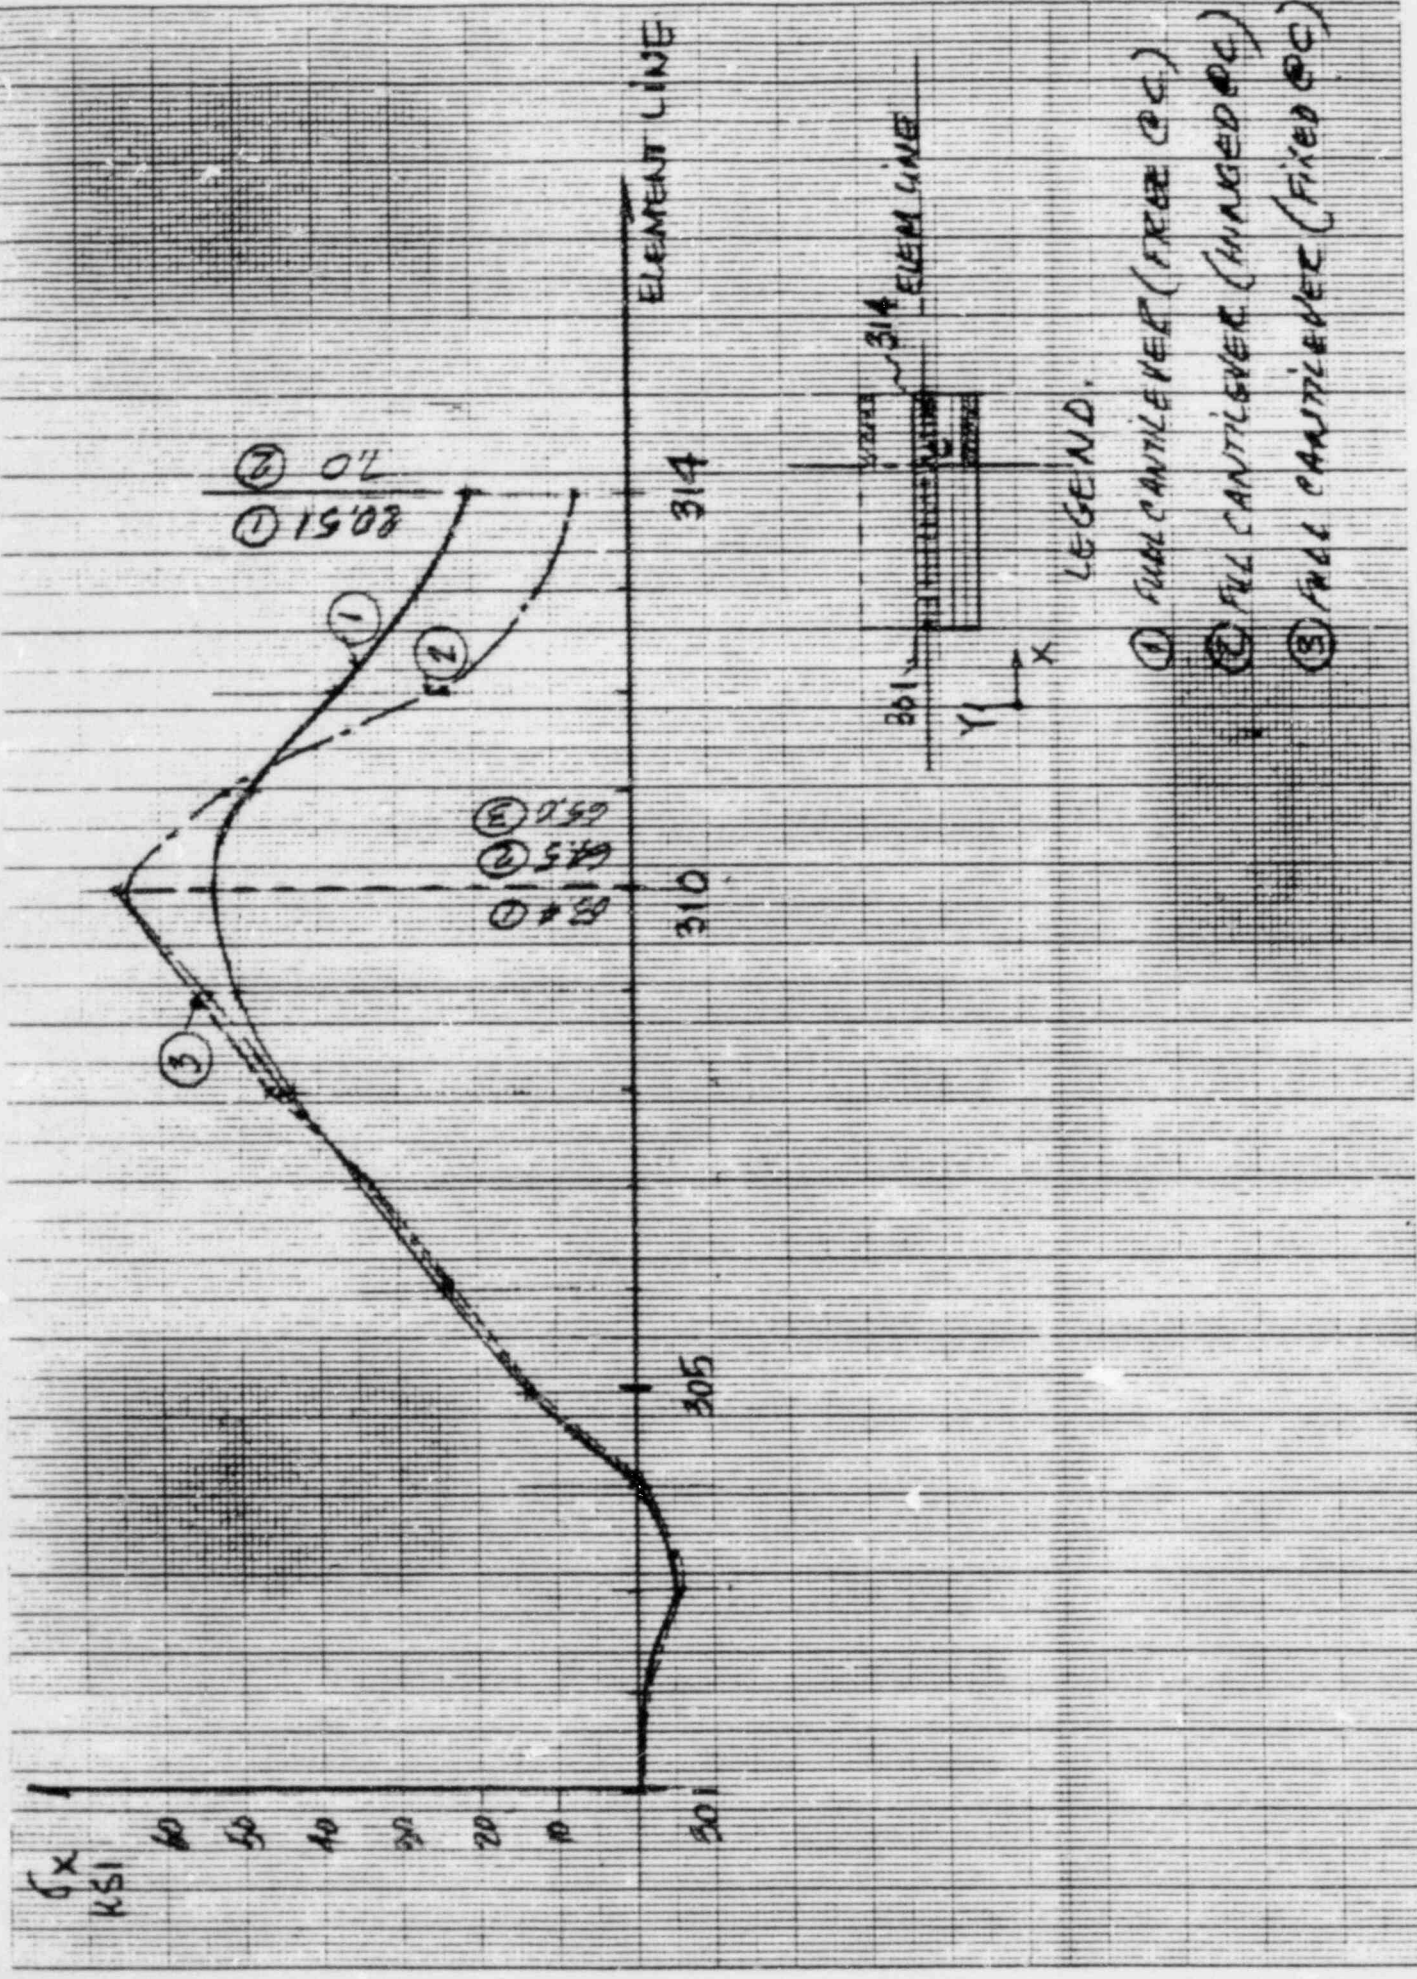 σx
KSI
60
50
40
30
20
10
301
305
310
314
ELEMENT LINE
③
①
②
53.4 ①
64.5 ②
65.0 ③
20.51 ①
7.0 ②
301
314
ELEM LINE
Y1
X
LEGEND.
① FULL CANTILEVER (FREE @C)
② FULL CANTILEVER (HINGED @C)
③ FULL CANTILEVER (FIXED @C)